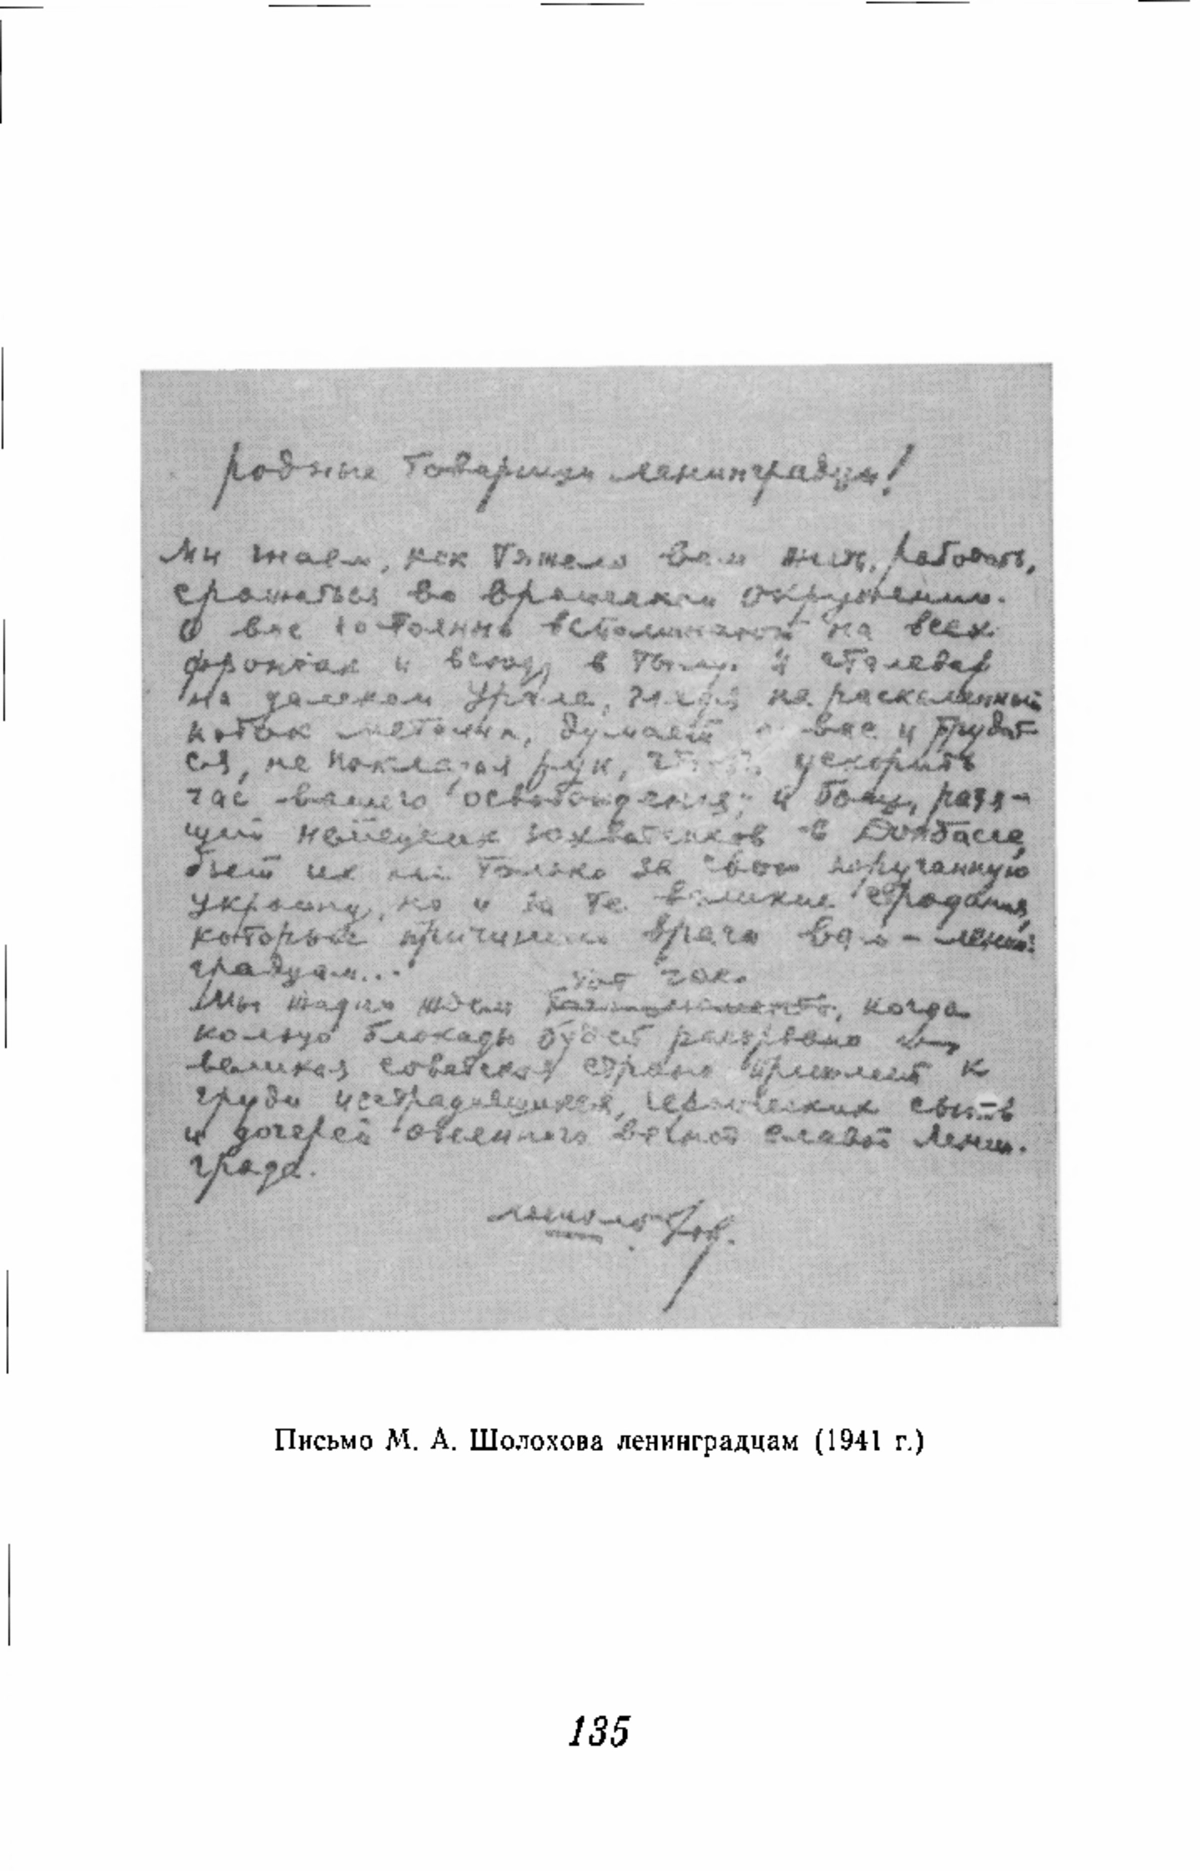 Родные товарищи ленинградцы!
Мы знаем, как тяжело вам жить, работать,
сражаться во вражеском окружении.
О вас постоянно вспоминают на всех
фронтах и всюду в тылу. И сталевар
на далеком Урале, глядя на раскаленный
поток металла, думает о вас и трудит-
ся, не покладая рук, чтобы ускорить
час вашего освобождения; и боец, разя-
щий немецких захватчиков в Донбассе,
бьет их не только за свою поруганную
Украину, но и за те великие страдания,
которые причинили враги вам – ленин-
градцам...
тот час
Мы жадно ждем, когда
кольцо блокады будет разорвано и
великая советская страна прижмет к
груди исстрадавшихся, героических сынов
и дочерей овеянного вечной славой Ленин-
града.
М. Шолохов.
Письмо М. А. Шолохова ленинградцам (1941 г.)
135